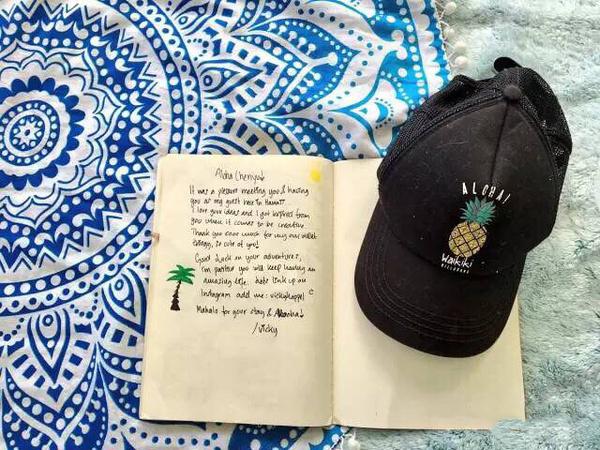 Aloha Chenyu!
It was a pleasure meeting you & having
you as my guest here in Hawaii.
I love your ideas and I got inspired from
you when it comes to be creative.
Thank you ever much for my owl wallet
thingy, is cute of you!
Good luck on your adventures,
I'm positive you will keep having an
amazing life. link up on
Instagram add me:
Mahalo for your stay & Aloha!
/Vicky
ALOHA!
Waikiki
BILLABONG